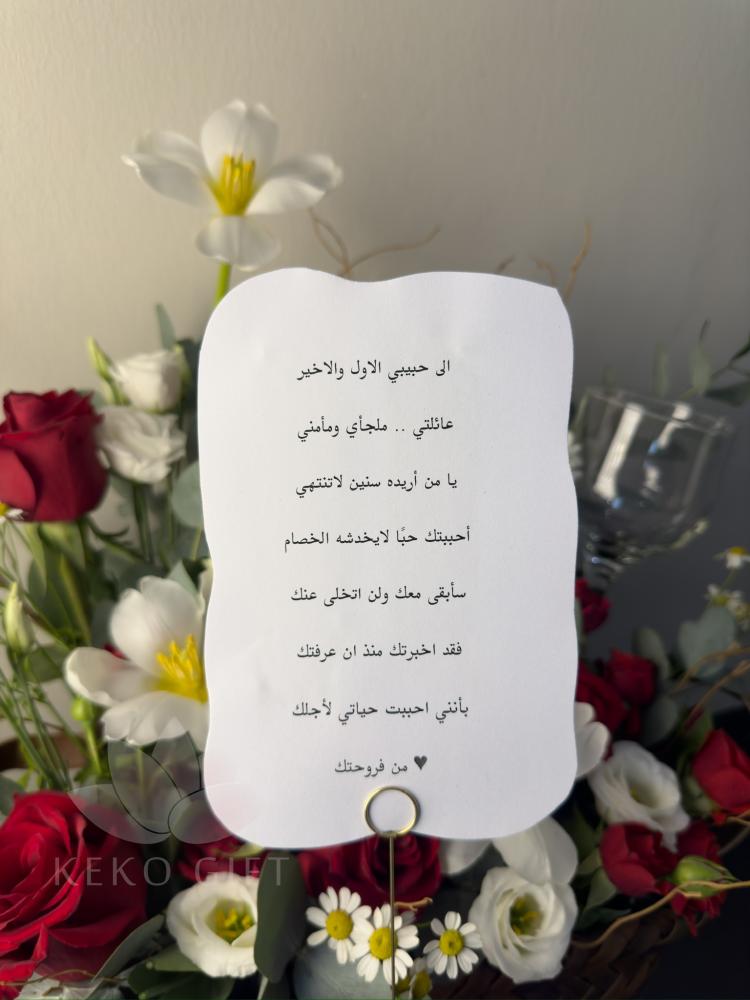 الى حبيبي الاول والاخير
عائلتي .. ملجأي ومأمني
يا من أريده سنين لاتنتهي
أحببتك حبًا لايخدشه الخصام
سأبقى معك ولن اتخلى عنك
فقد اخبرتك منذ ان عرفتك
بأنني احببت حياتي لأجلك
♥ من فروحتك
KEKO GIFT